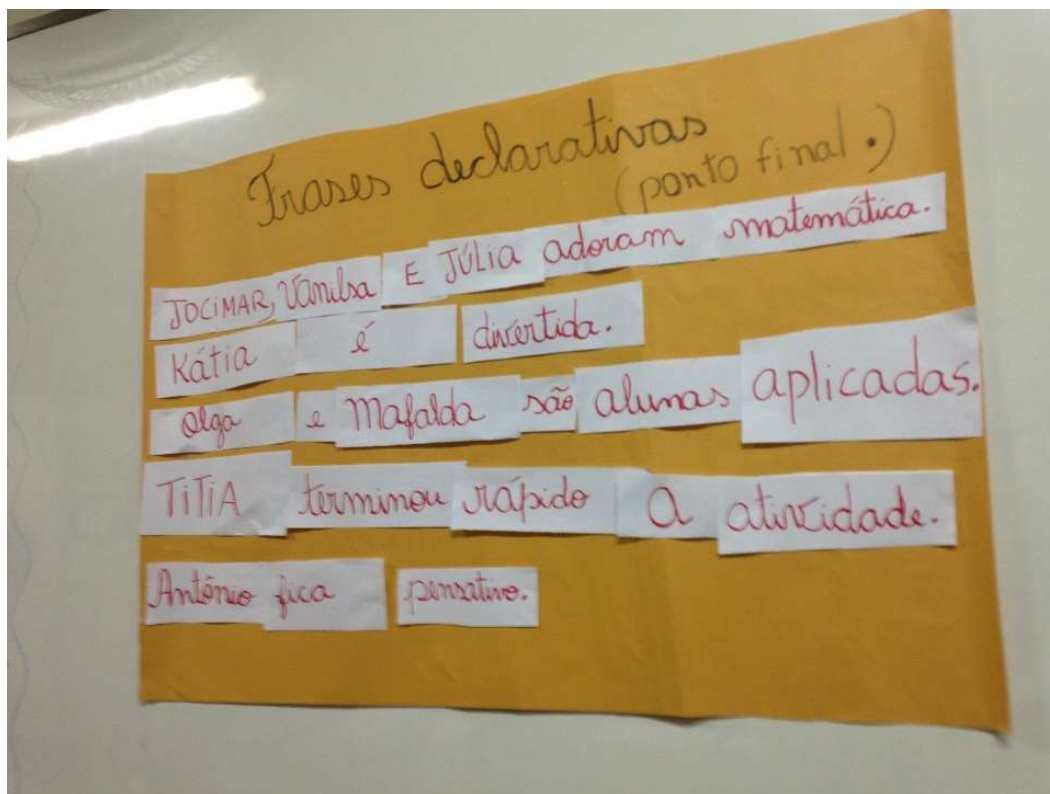 Frases declarativas
(ponto final.)
JOCIMAR, Vanilsa E JÚLIA adoram matemática.
Kátia é divertida.
Olga e Mafalda são alunas aplicadas.
TITIA terminou rápido a atividade.
António fica pensativo.